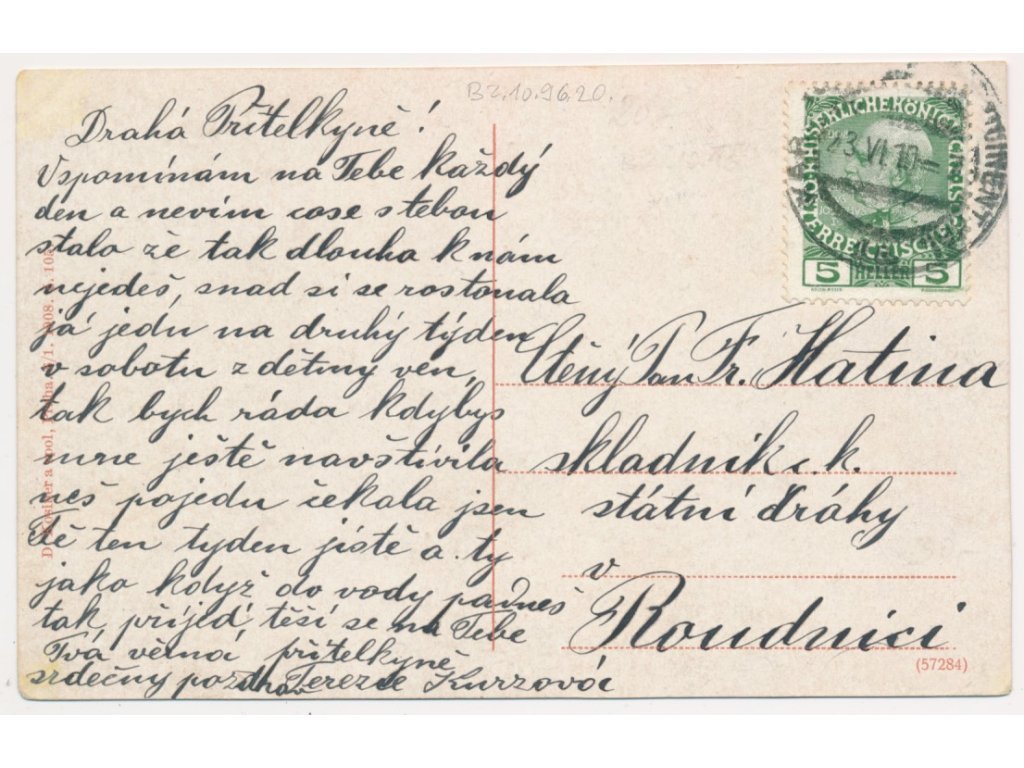 BZ.10.96.20.
Drahá Přítelkyně!
Vspomínám na Tebe každý
den a nevím cose stebou
stalo že tak dlouha k nám
nejedeš, snad si se rostonala
já jedu na druhý týden
v sobotu z dětmy ven,
tak bych ráda kdybys
mne ještě navštívila
neš pojedu čekala jsem
Tě ten tyden jistě a ty
jako když do vody padneš
tak přijeď těší se na Tebe
Tvá věrná přítelkyně
srdečný pozdrav Terezie Kurzová
23.VI.10
ÖSTERREICHISCHE
KAISERLICHE KÖNIGLICHE
5 HELLER 5
Ctěný Pan Fr. Hatina
skladník c. k.
státní dráhy
v
Roudnici
(57284)